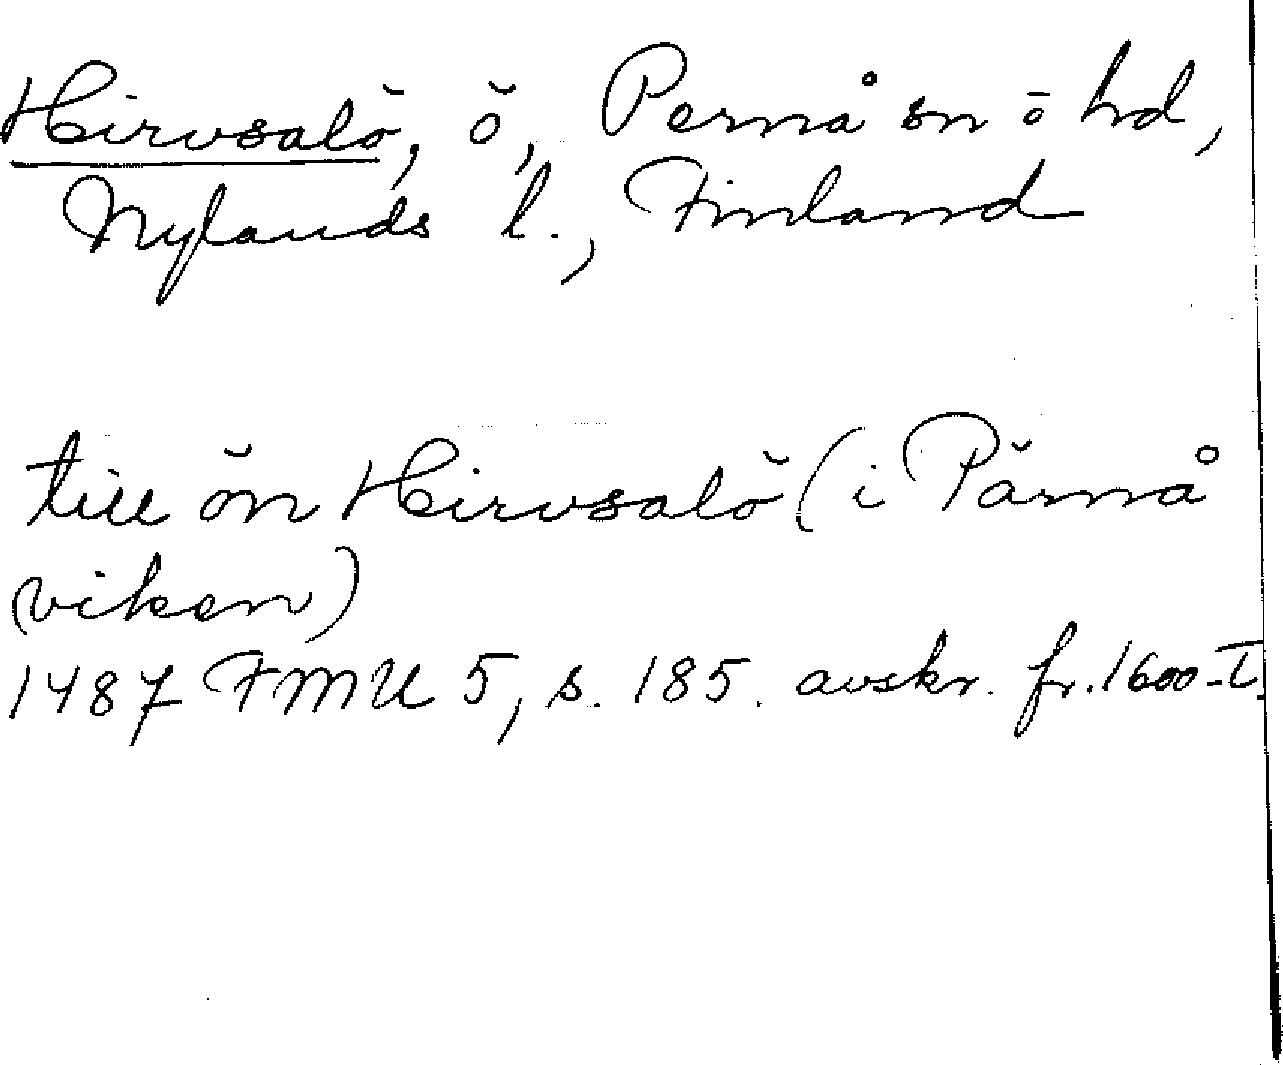 Hirvsalö, ö, Pernå sn o hd,
Nylands l., Finland
till ön Hirvsalö (i Pärnå
viken)
1487 FMU 5, s. 185. avskr. fr. 1600-t.